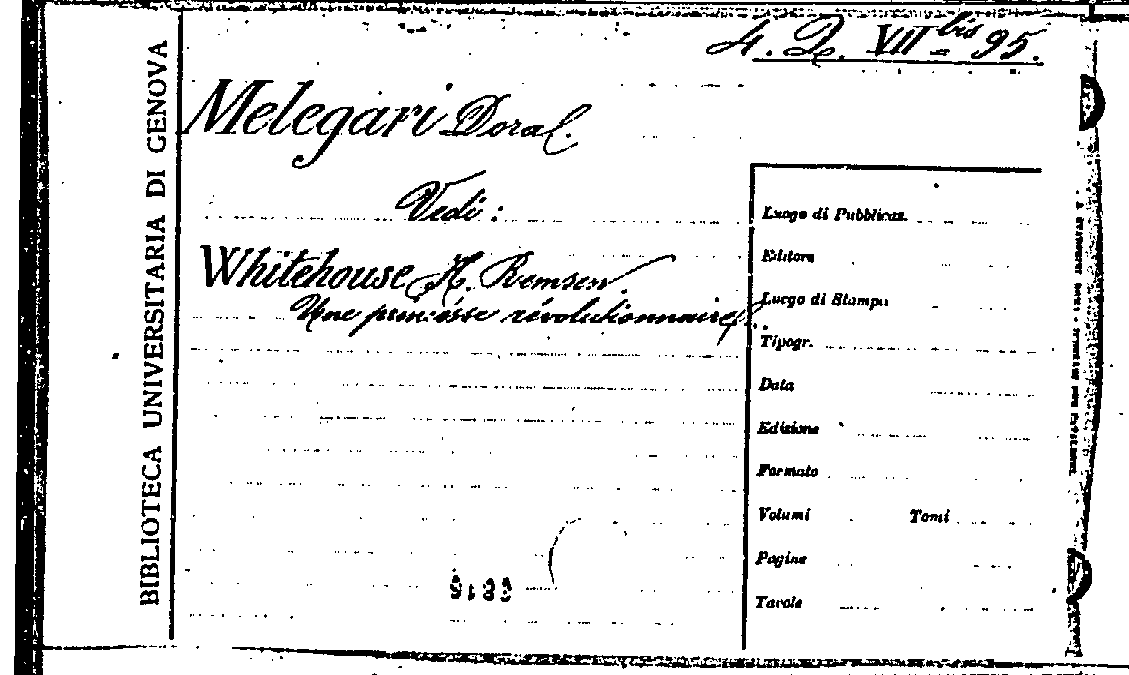 4. D. VII bis 95.
Melegari Dora.
Vedi:
Whitehouse H. Remsen.
Une princesse révolutionnaire
BIBLIOTECA UNIVERSITARIA DI GENOVA
Luogo di Pubblicaz.
Editore
Luogo di Stampa
Tipogr.
Data
Edizione
Formato
Volumi Tomi
Pagine
Tavole